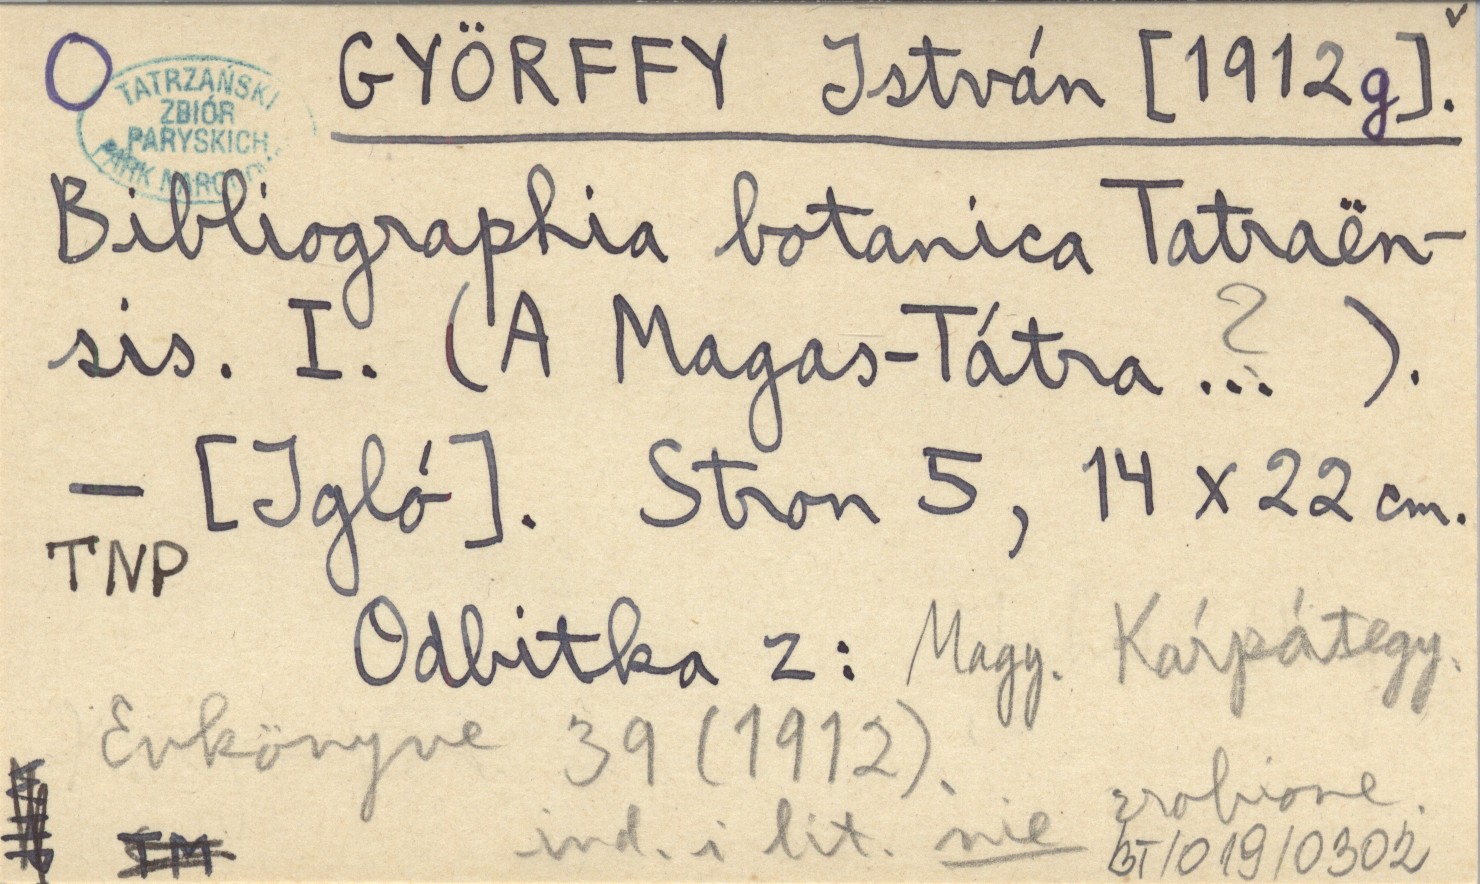 TATRZAŃSKI
ZBIÓR
PARYSKICH
PARK
GYÖRFFY István [1912g].
Bibliographia botanica Tatraën-
sis. I. (A Magas-Tátra ...? ).
— [Igló]. Stron 5, 14 x 22 cm.
TNP
Odbitka z: Magy. Kárpátegy.
Evkönyve 39 (1912).
ind. i lit. nie zrobione.
TM
BT/019/0302